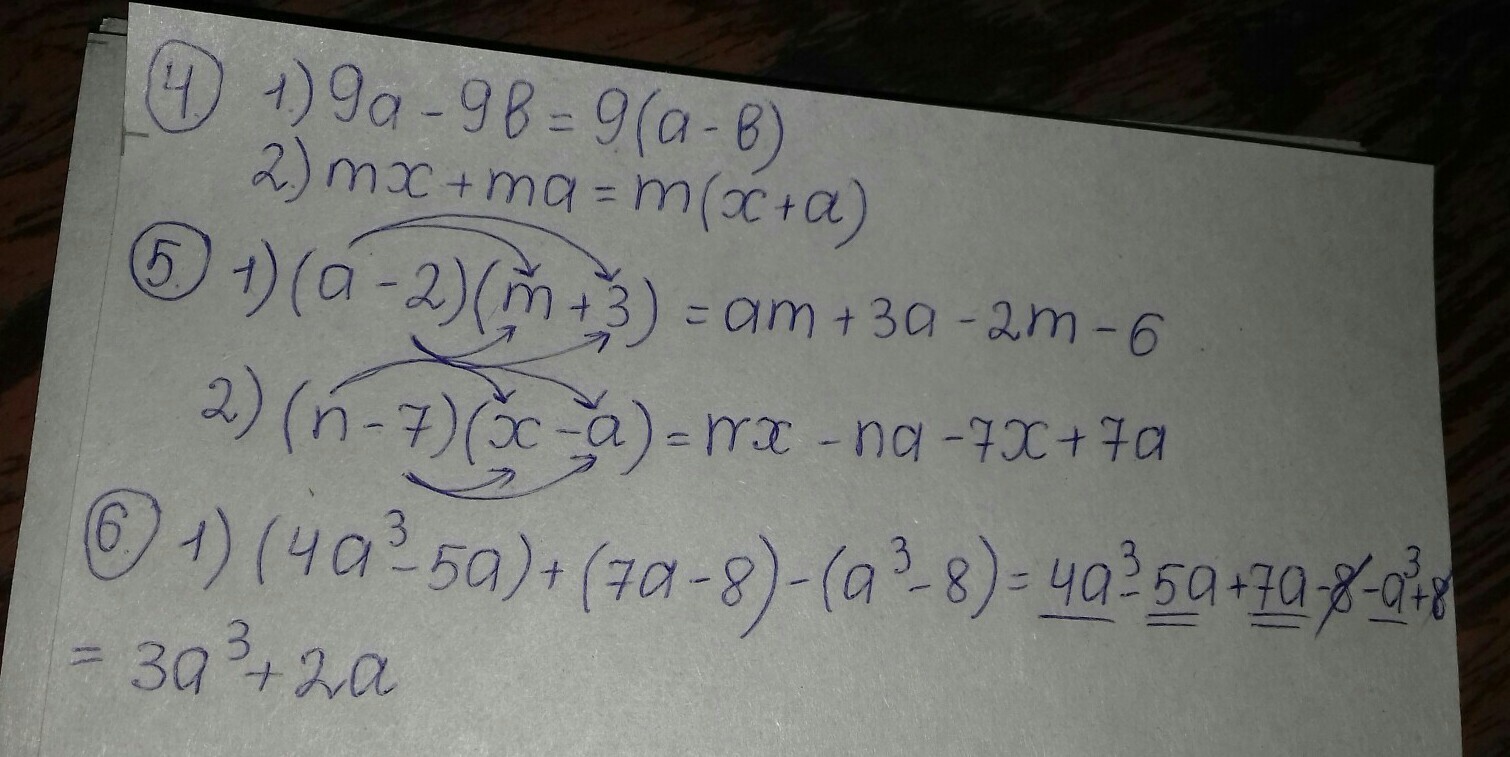 4. 1) 9a - 9b = 9(a - b)
2) mx + ma = m(x + a)
5. 1) (a - 2)(m + 3) = am + 3a - 2m - 6
2) (n - 7)(x - a) = nx - na - 7x + 7a
6. 1) (4a³ - 5a) + (7a - 8) - (a³ - 8) = 4a³ - 5a + 7a - 8 - a³ + 8
= 3a³ + 2a